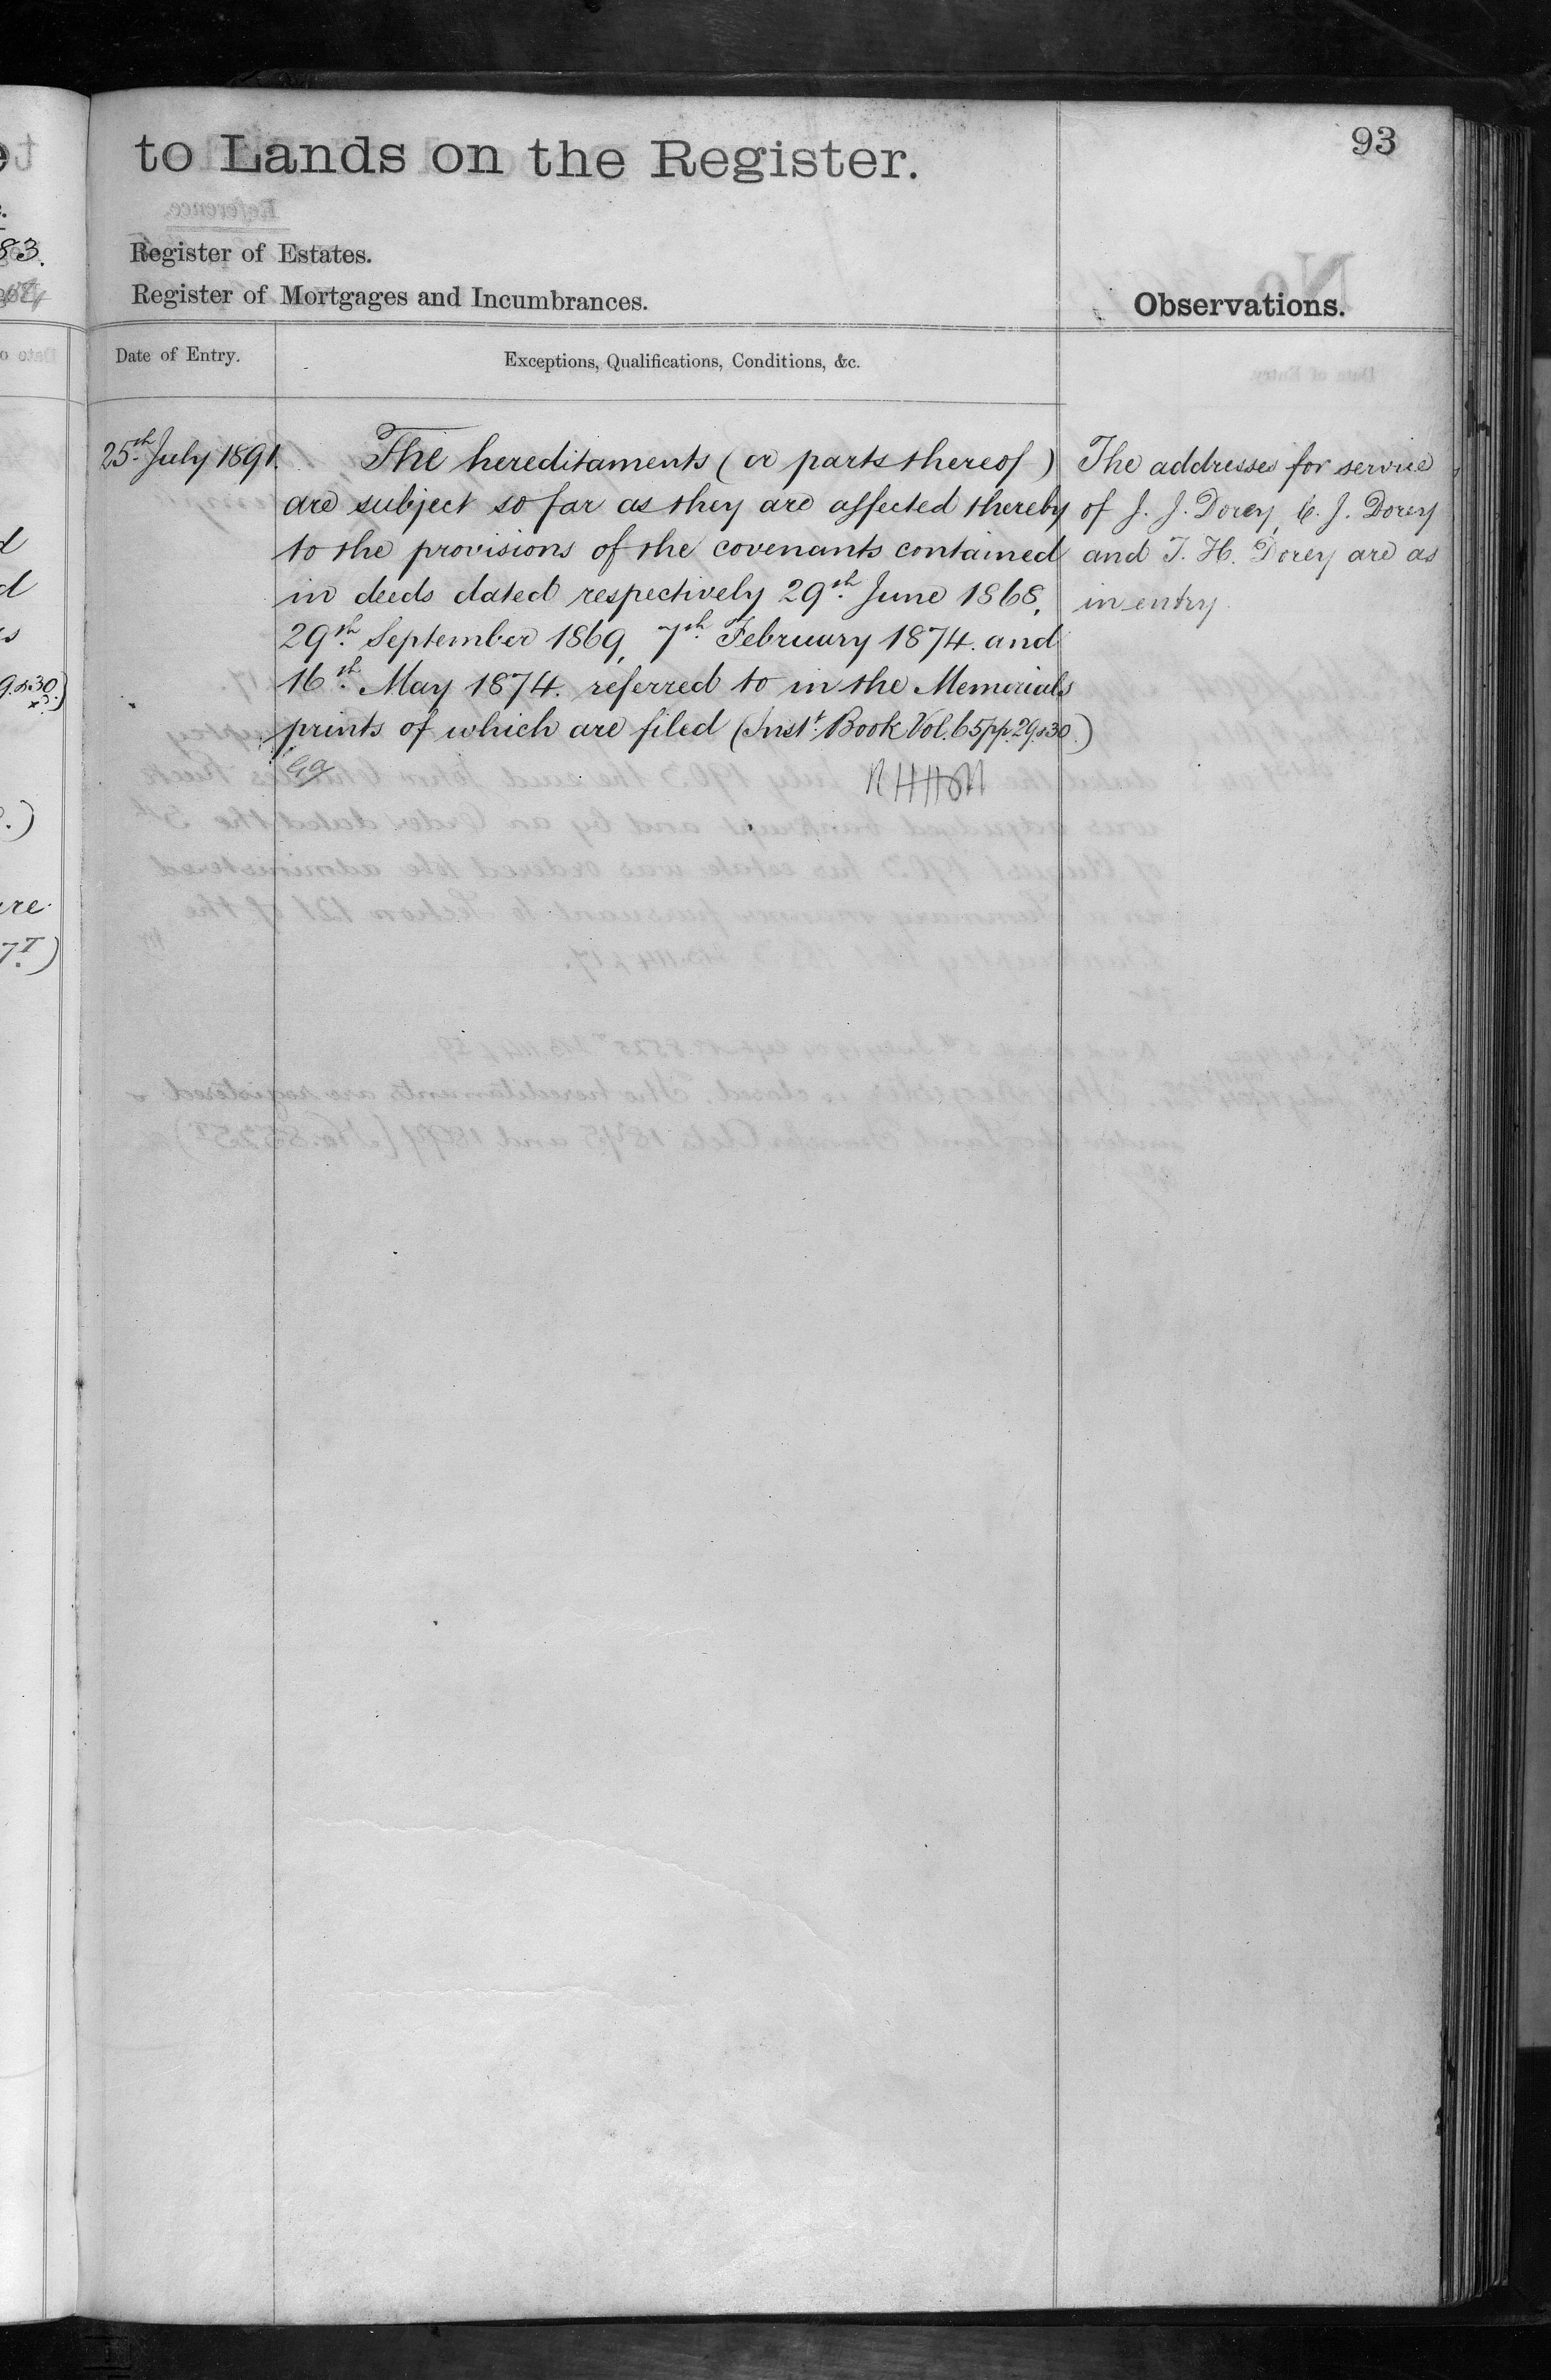 93
to Lands on the Register.
Register of Estates.
Register of Mortgages and Incumbrances.
Observations.
Date of Entry.
Exceptions, Qualifications, Conditions, &c.
25th July 1891.
The hereditaments (or parts thereof)
are subject so far as they are affected thereby
to the provisions of the covenants contained
in deeds dated respectively 29th June 1868,
29th September 1869, 7th February 1874. and
16th May 1874. referred to in the Memorials
prints of which are filed (Inst. Book Vol. 65 pp. 29 & 30.)
The addresses for service
of J. J. Dorey, C. J. Dorey
and T. H. Dorey are as
in entry.